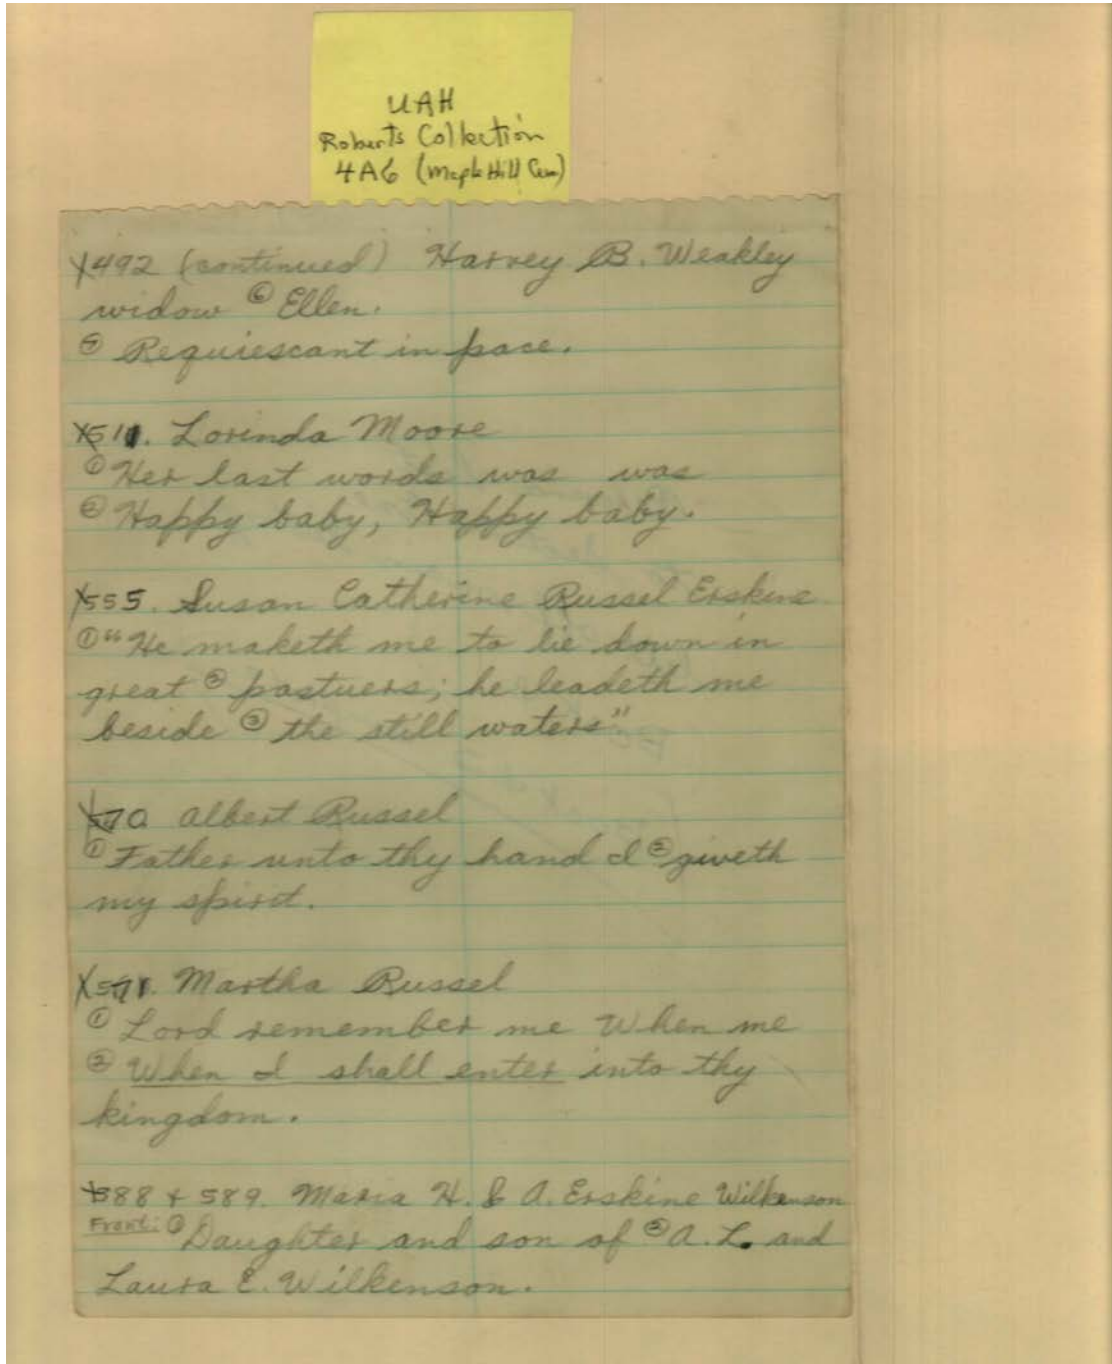 UAH
Roberts Collection
4A6 (Maple Hill Cem)
X492 (continued) Harvey B. Weakley
widow ⑥ Ellen.
⑦ Requiescant in pace.
X511. Lorinda Moore
① Her last words was was
② Happy baby, Happy baby.
X555. Susan Catherine Russel Erskine
① "He maketh me to lie down in
great ② pastuers; he leadeth me
beside ③ the still waters"
X570 Albert Russel
① Father unto thy hand I ② giveth
my spirit.
X571. Martha Russel
① Lord remember me When me
② When I shall enter into thy
kingdom.
X588 + 589. Maria H. & A. Erskine Wilkenson
Front: ① Daughter and son of ② A. L. and
Laura E. Wilkenson.